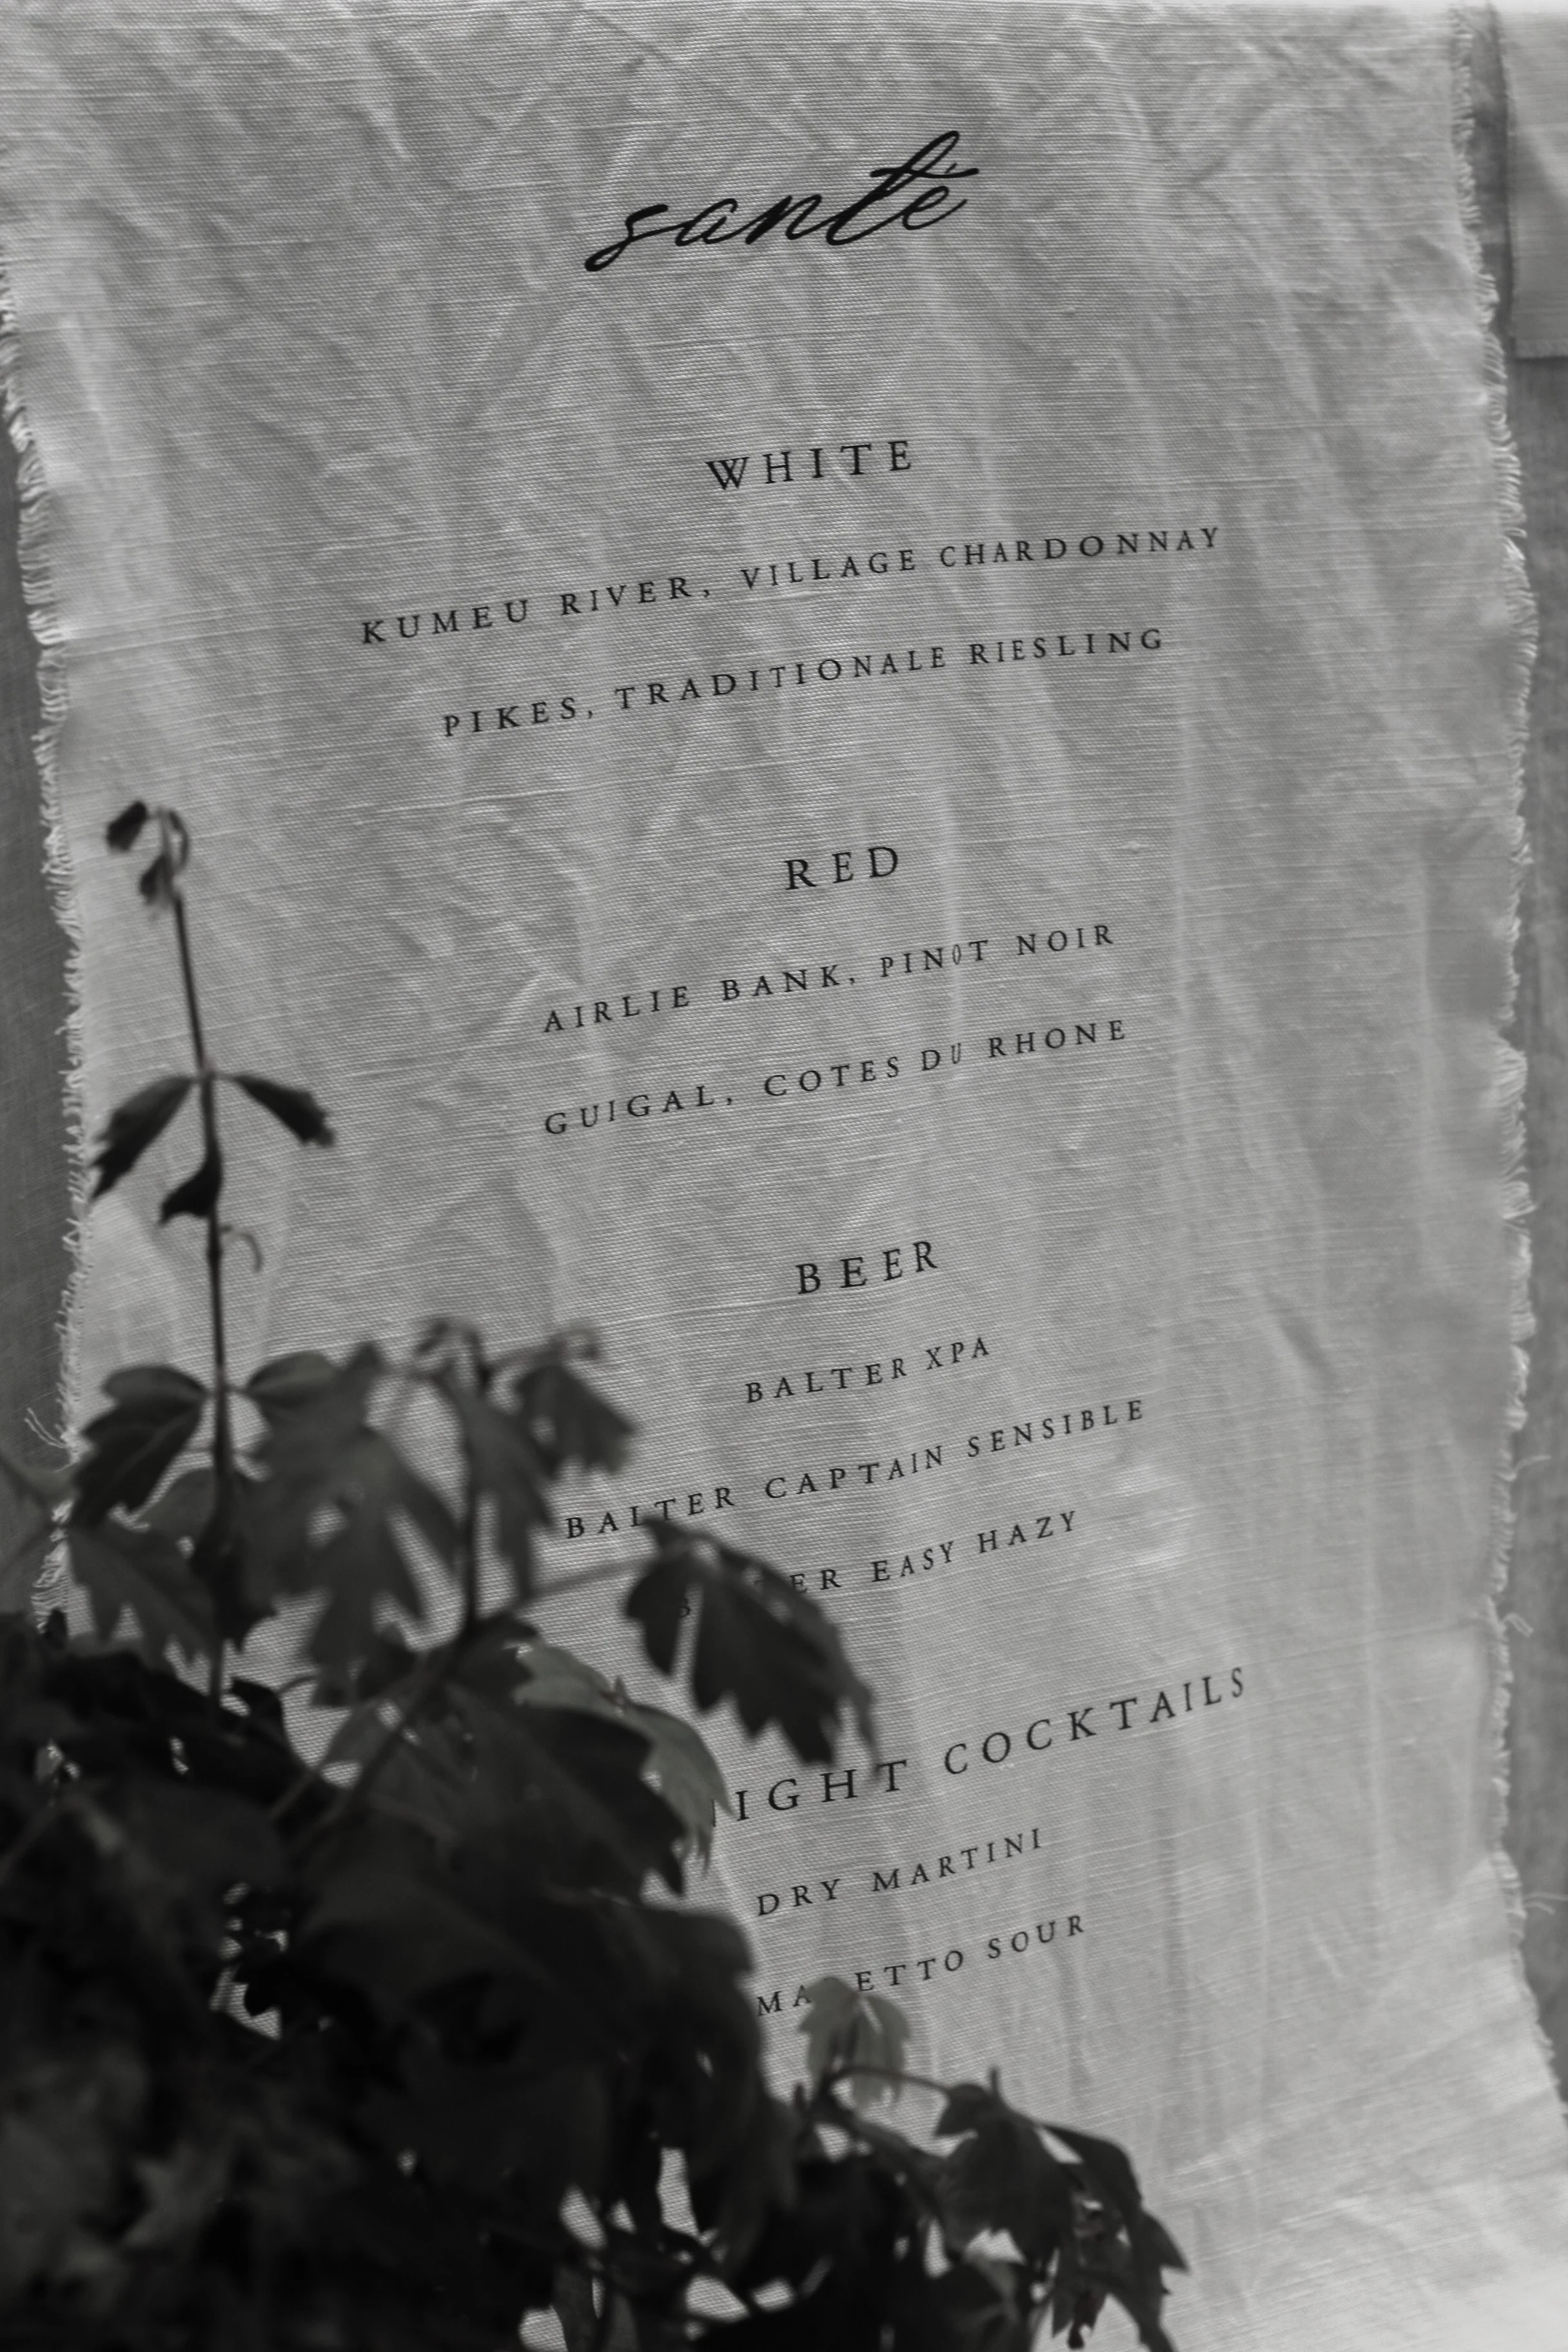 santé
WHITE
KUMEU RIVER, VILLAGE CHARDONNAY
PIKES, TRADITIONALE RIESLING
RED
AIRLIE BANK, PINOT NOIR
GUIGAL, COTES DU RHONE
BEER
BALTER XPA
BALTER CAPTAIN SENSIBLE
EASY HAZY
COCKTAILS
DRY MARTINI
SOUR